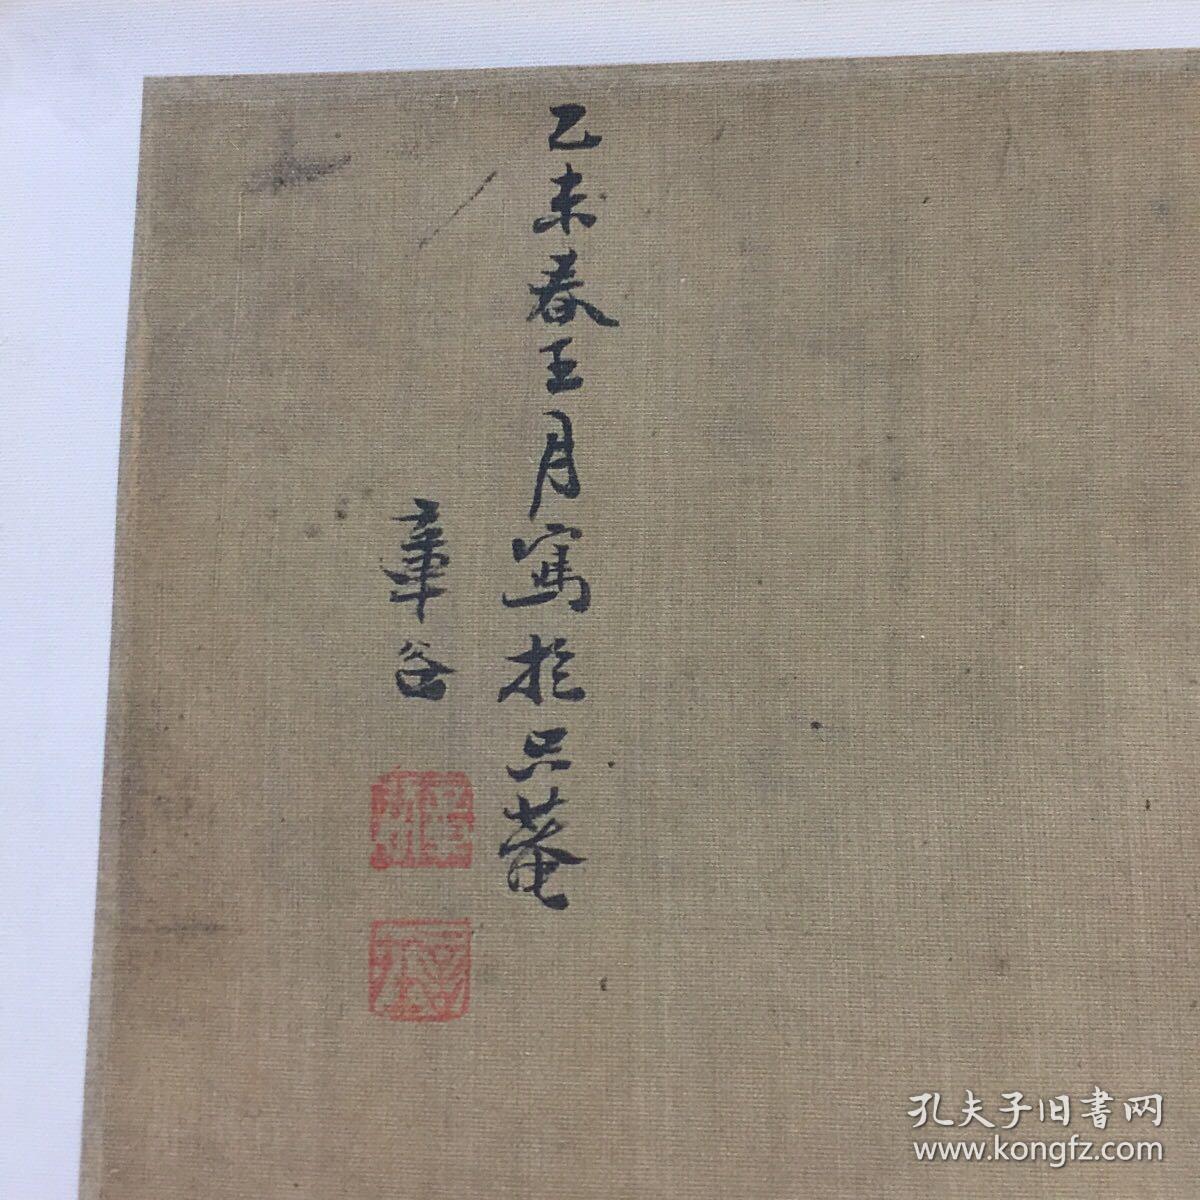 乙未春王月寫於只菴
章谷
孔夫子旧書网
www.kongfz.com